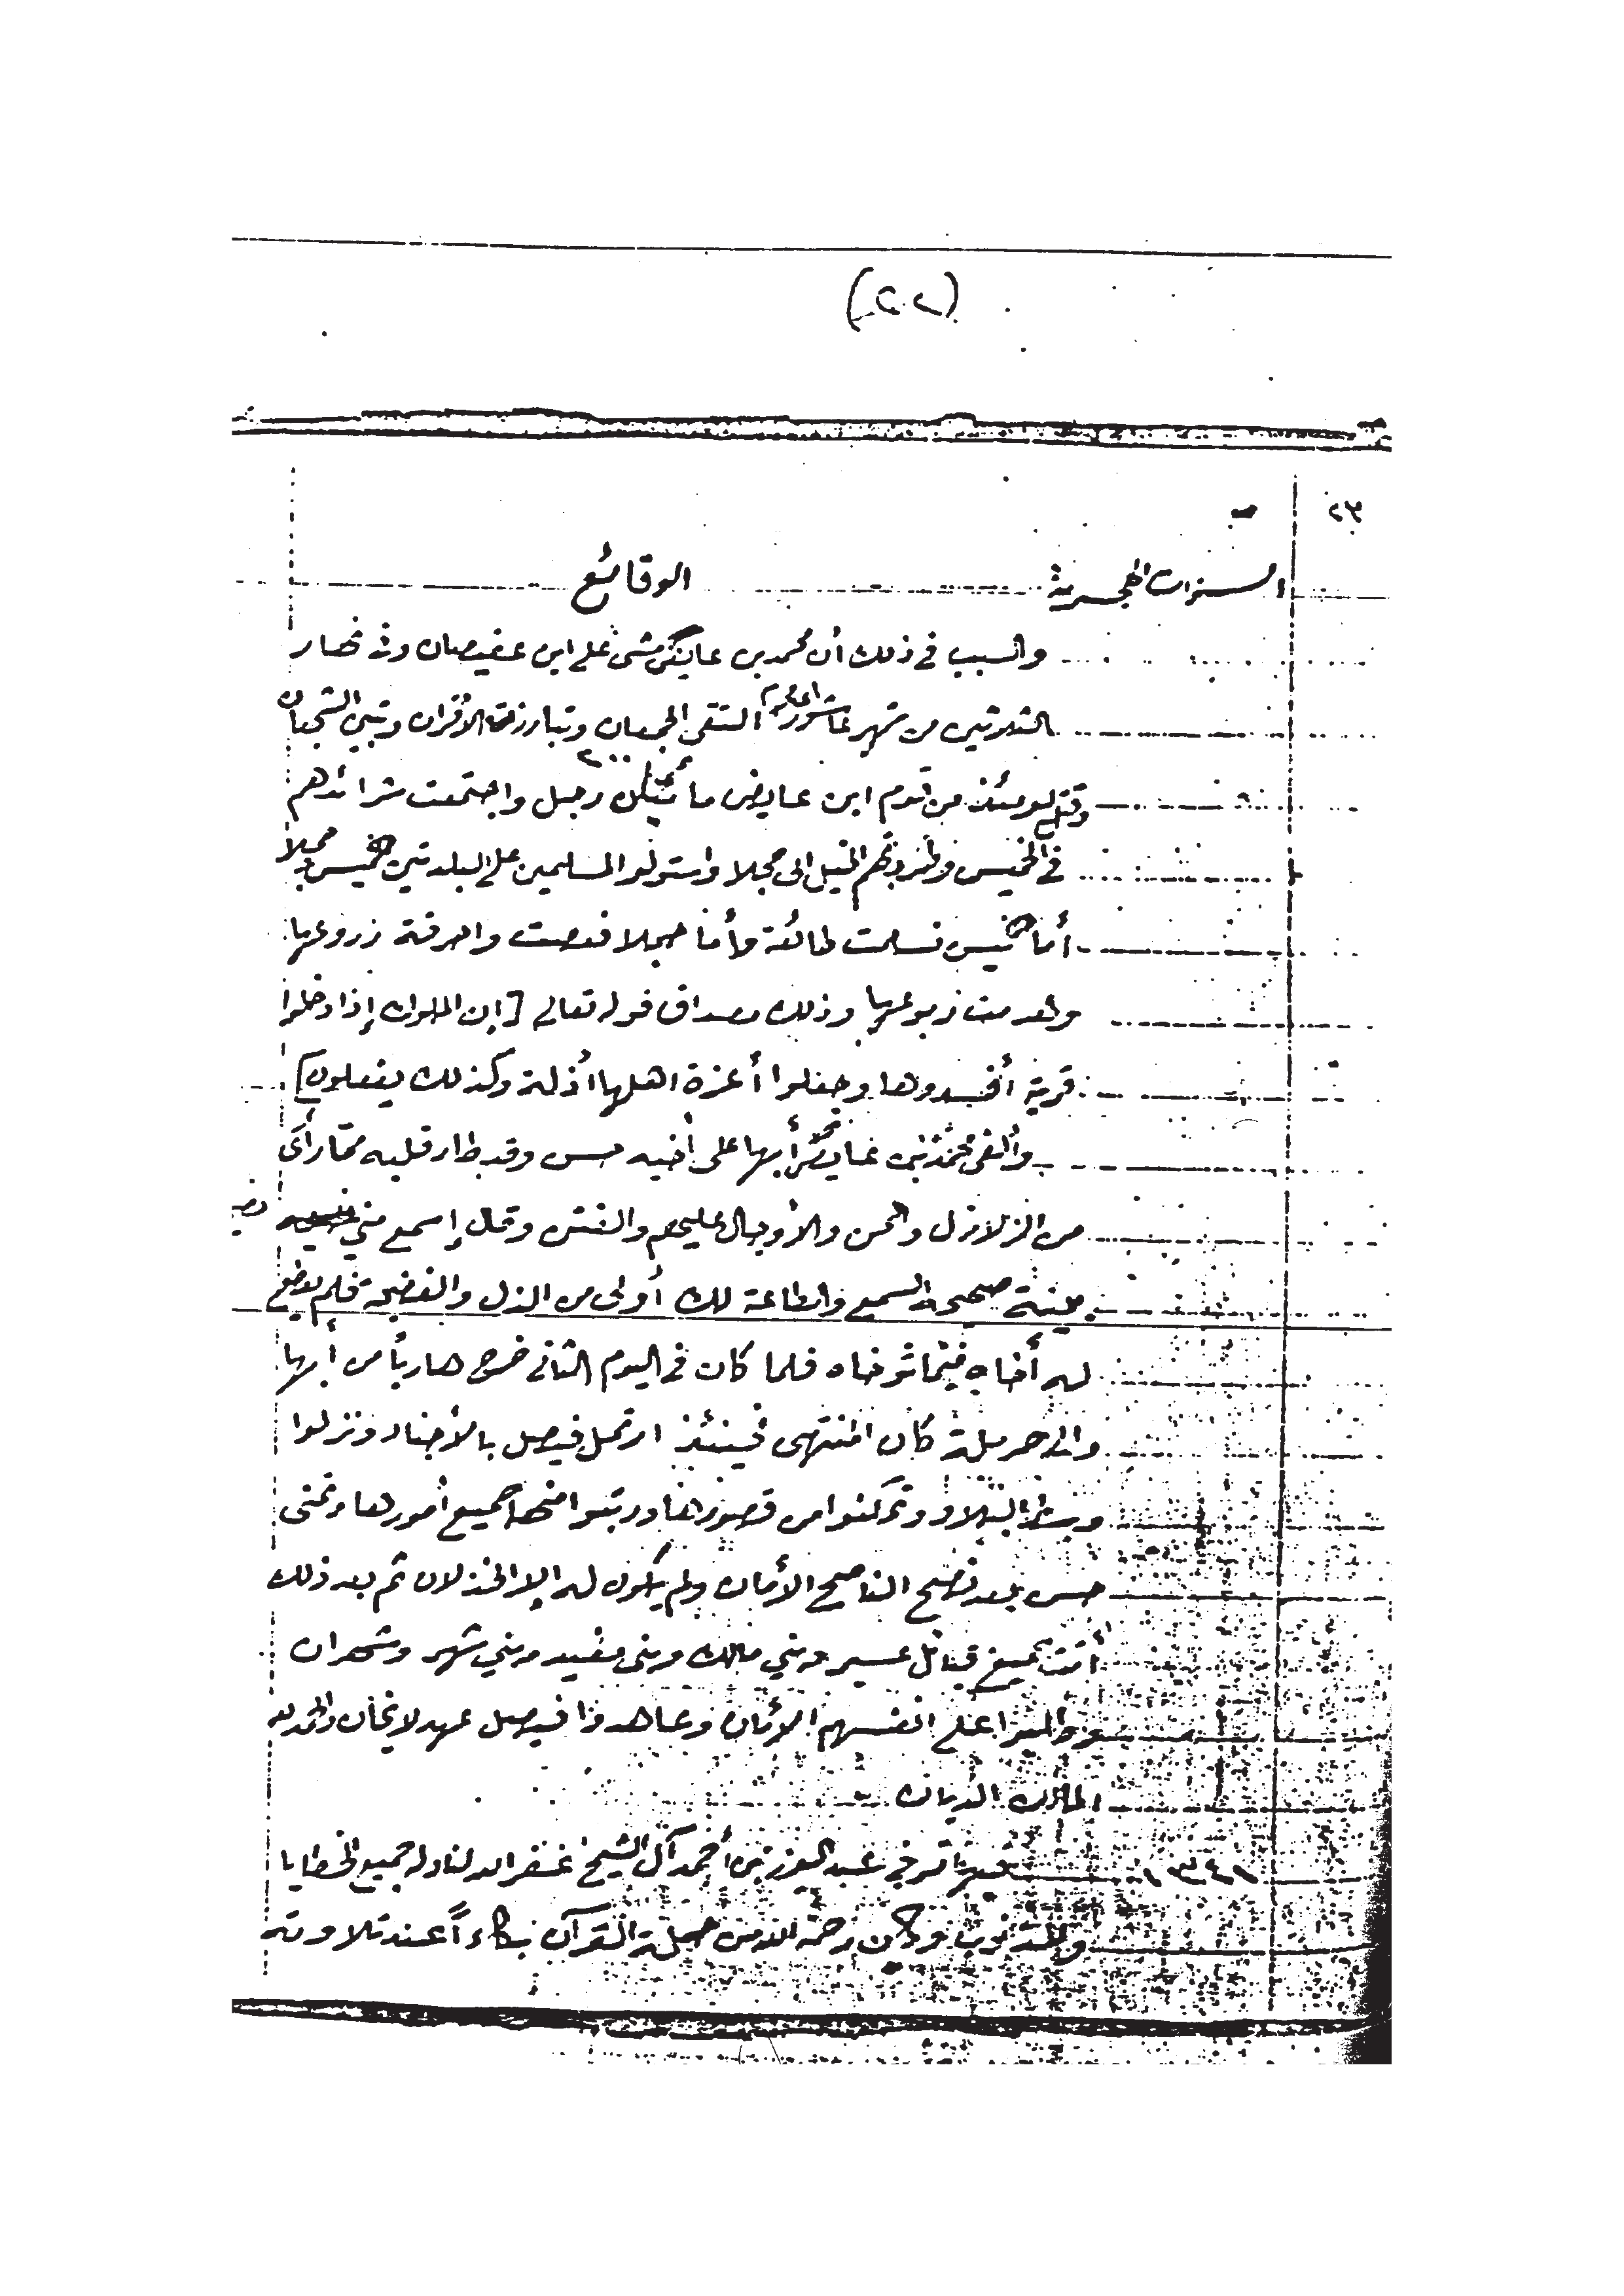 (٢٠٢)
٢٣
السنوات الهجرية الوقائع
والسبب في ذلك أن محمد بن عايض مشى على ابن عفيصان وفي نهار
الثلاثين من شهر عاشوراء المحرم التقى الجمعان وتبارزت الأقران وتبين الشجعان
٢٠٠
وقتل يومئذ من قوم ابن عايض مأتين رجل واجتمعت شرائدهم
في الخميس وطردتهم الخيل الى حجلا واستولو المسلمين على البلدتين خميس وحجلا
أما خميس فسلمت طائعة وأما حجلا فعصت واحرقت زروعها
وانعدمت ربوعها وذلك مصداق قوله تعالى [إن الملوك إذا دخلوا
قرية أفسدوها وجعلوا أعزة اهلها أذلة وكذلك يفعلون]
وألفى محمد بن عايض أبها على أخيه حسن وقد طار قلبه مما رأى
من الزلازل والمحن والأوجال عليهم والفتن وقال إسمع مني
صحيحة السمع والطاعة لك أولى من الذل والفضيحة فلم يطع
له أخاه فيما توخاه فلما كان في اليوم الثاني خرج هارباً من أبها
والى حرملة كان المنتهى فحينئذ ارتحل فيصل بالأجناد ونزلوا
وسط البلاد وتمكنوا من قصورها ورتبوا منها جميع أمورها وتمنى
حسن بعد نصح الناصح الأمان ولم يكون له إلا الخذلان ثم بعد ذلك
أمنت جميع قبائل عسير وبني مالك وبنى مغيد وبني شهر وشهران
وطلبوا على انفسهم الأمان وعاهدوا فيصل عهد لا يخان والحمد لله
الملك الديان
١٣٤١ فيها توفي عبد العزيز بن أحمد آل الشيخ غفر الله لنا وله جميع الخطايا
والذنوب وكان رحمه الله من حملة القرآن بكاءاً عند تلاوته